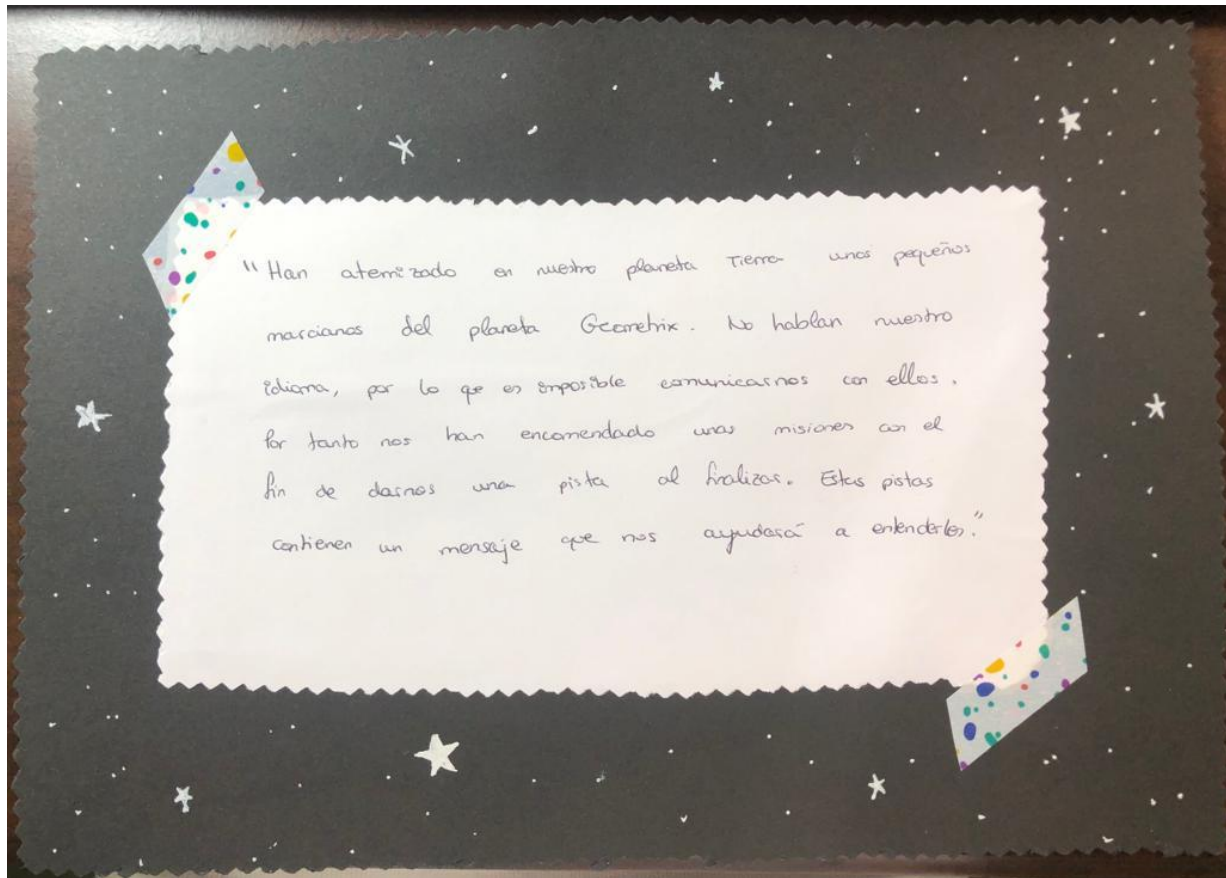 "Han aterrizado en nuestro planeta Tierra unos pequeños
marcianos del planeta Geometrix. No hablan nuestro
idioma, por lo que es imposible comunicarnos con ellos.
Por tanto nos han encomendado unas misiones con el
fin de darnos una pista al finalizar. Estas pistas
contienen un mensaje que nos ayudará a entenderles."